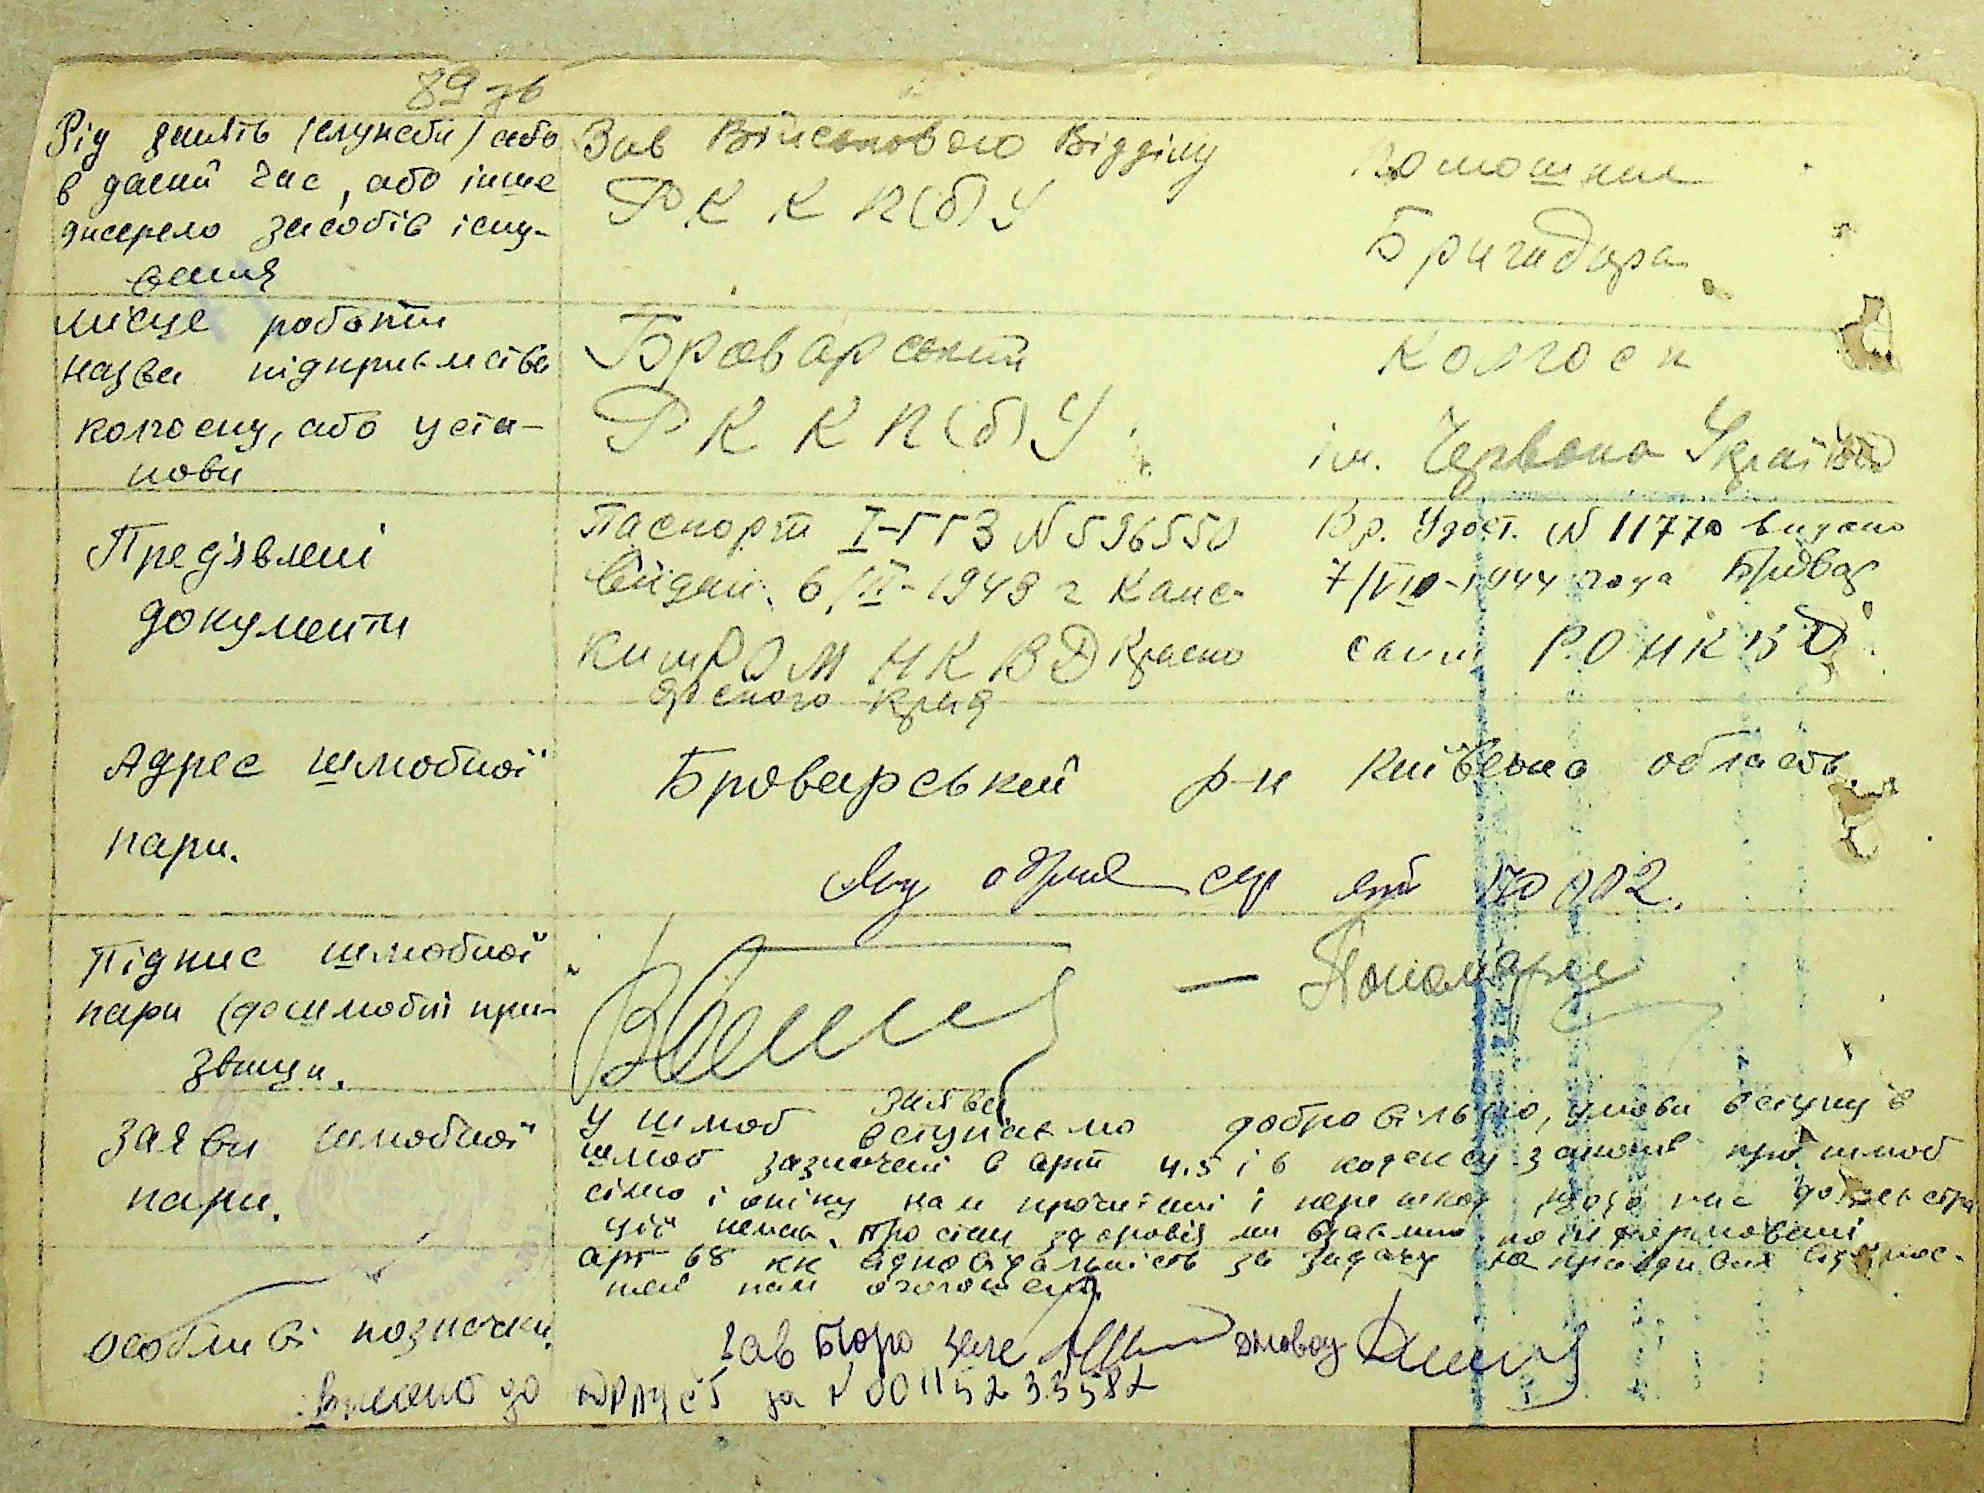 89 зв
Рід занять (служби) або
в даний час, або інше
джерело засобів існу-
вання
Зав Військового Відділу
Р К К П(б)У
Помошник
Бригадира
місце роботи
назва підприємства
колгоспу, або уста-
нови
Броварський
Р К К П(б)У
Колгосп
ім. Червона Україна
Пред'явлені
документи
Паспорт I-ГГЗ N 596550
Видан. 6/III-1943 г Канс-
ким РОМ НКВД Красно
ярского края
Вр. Удост. N 11770 видано
7/VIII-1944 года Бровар
ским РОНКВД
Адрес шлюбної
пари.
Броварський р-н Київська область
сер 002.
Підпис шлюбної
пари (дошлюбні при-
звища.
— Пономар
Заяви шлюбної
пари.
заява
У шлюб вступаємо добровільно, умови вступу в
шлюб зазначені в арт 4.5 і 6 кодексу законів про шлюб
сімю і опіку нам прочитані і перешкод щодо нас до реєстра
ції немає. Про стан здоровія ми взаємно поінформовані
арт 68 КК відповідальність за задачу неправдивих відомос-
тей нам оголошено.
Особливі позначки.
Зав Бюро діловод
Внесено до ЮРЛЦСТ за N 00115233582